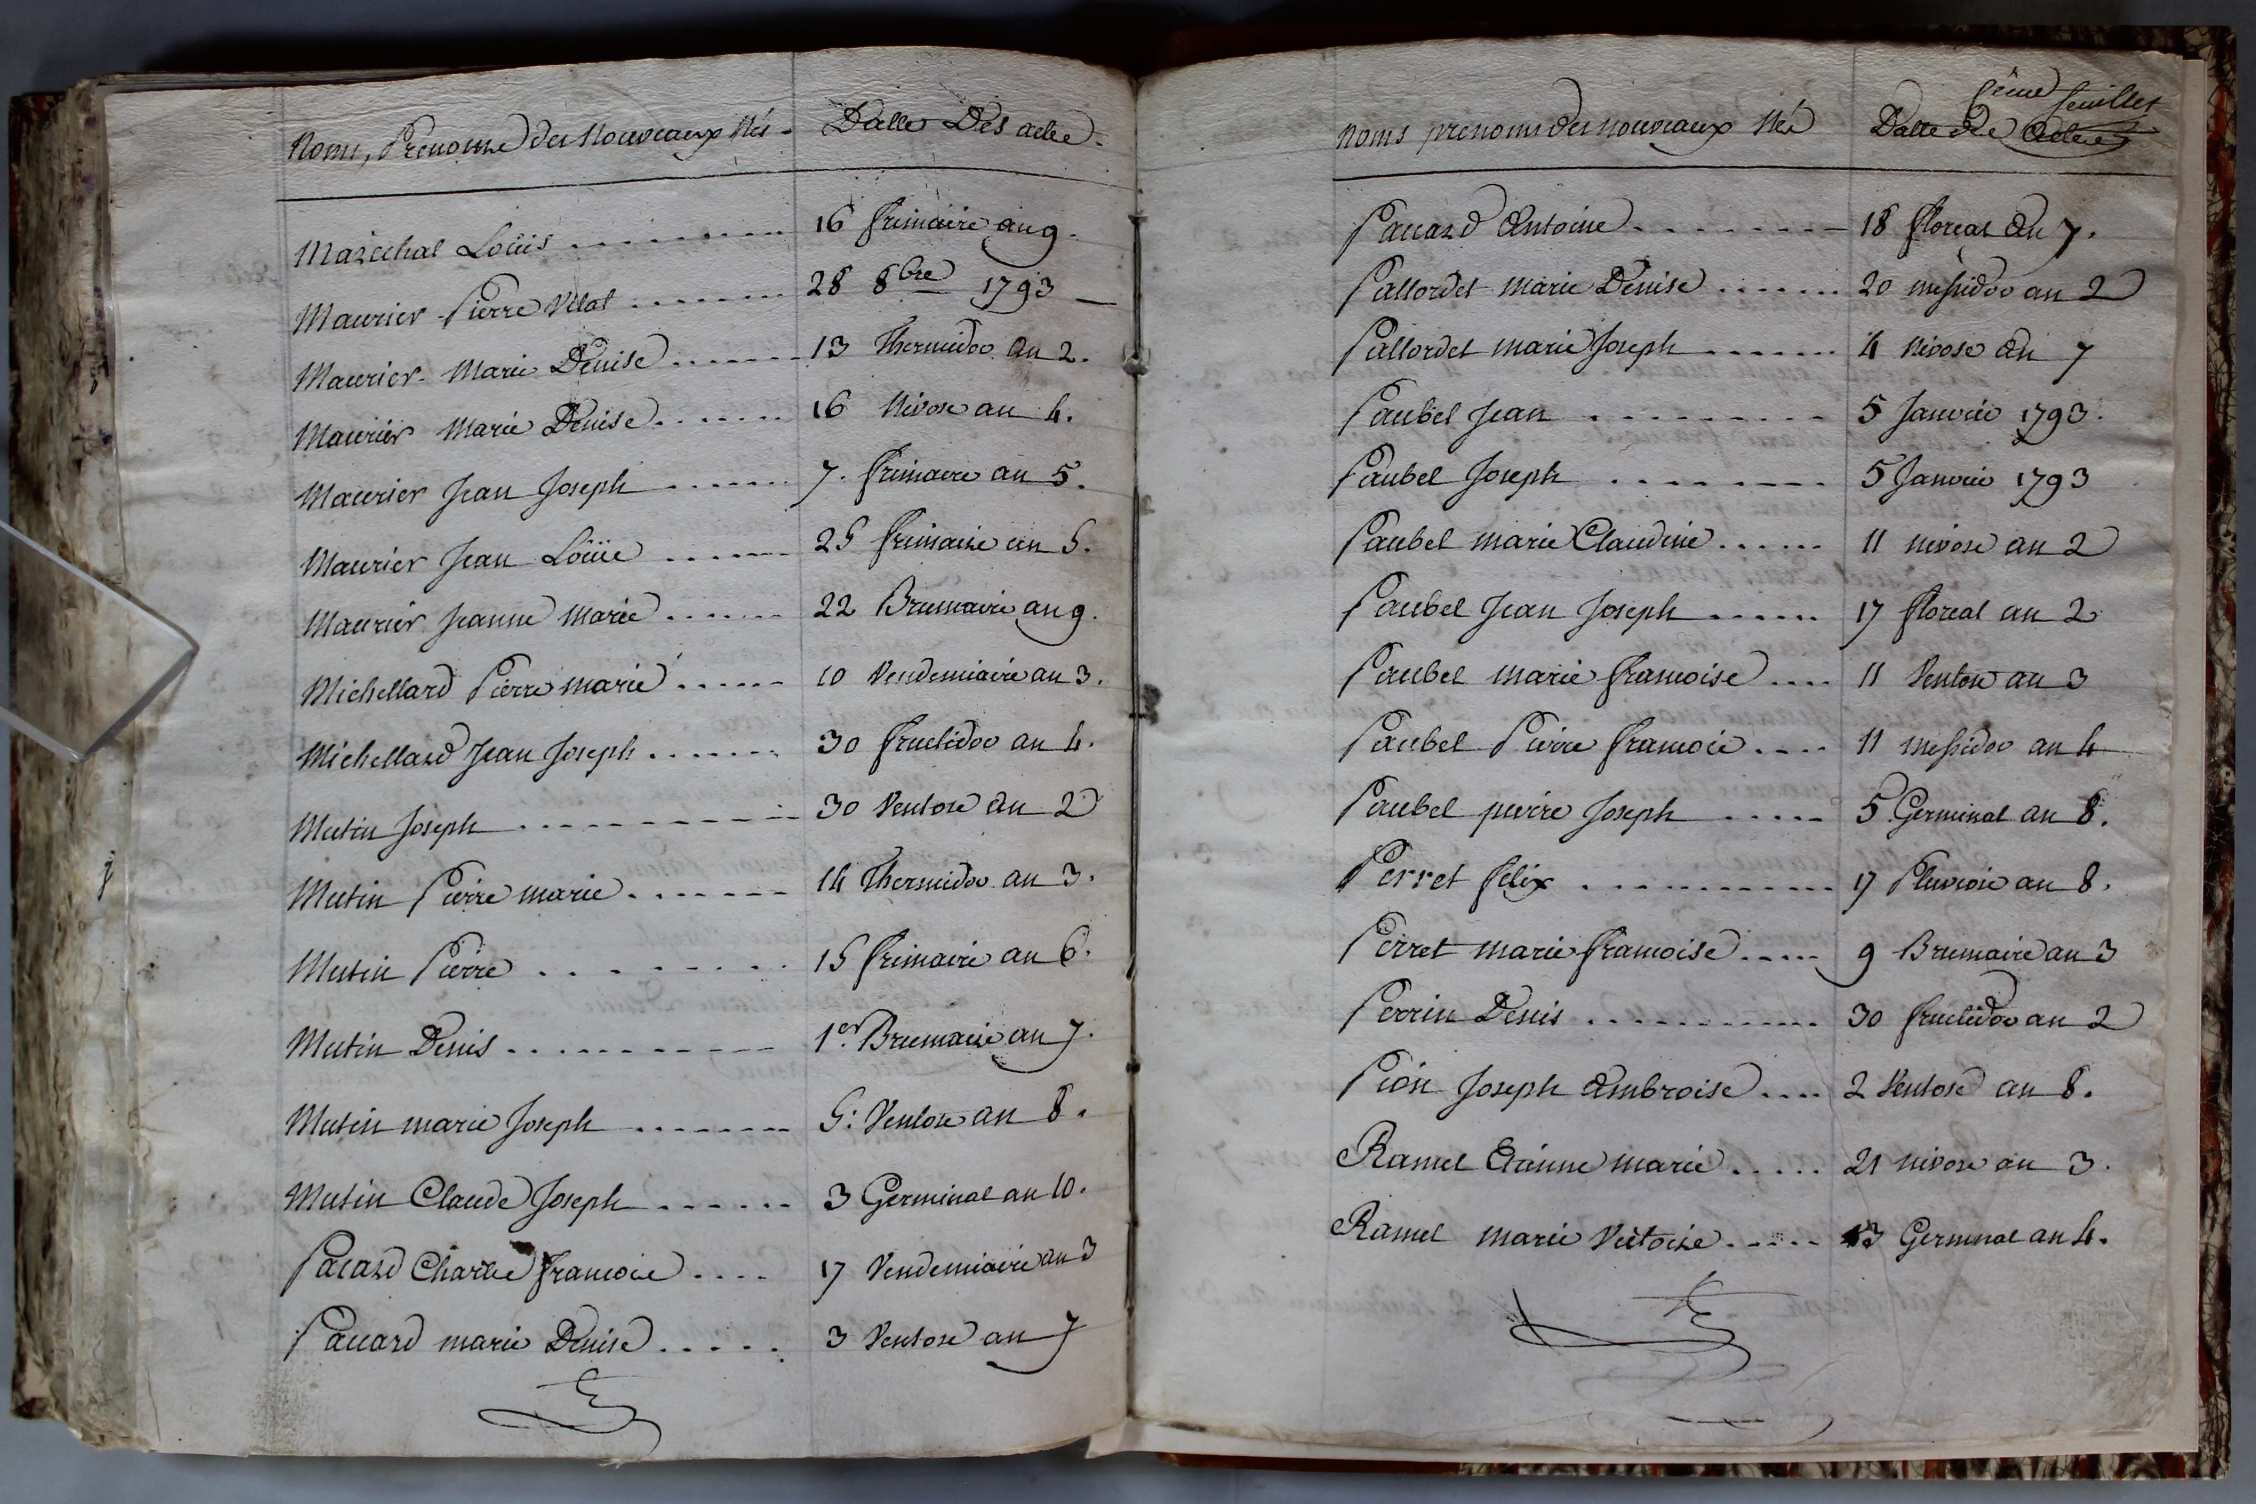 Noms, Prenoms des Nouveaux Nés - Datte Des actes.
Marechal Loüis 16 frimaire an 9.
Maurier Pierre Vital 28 8bre 1793
Maurier Marie Denise 13 Thermidor an 2.
Maurier Marie Denise 16 Nivose an 4.
Maurier Jean Joseph 7. frimaire an 5.
Maurier Jean Loüis 25 frimaire an 5.
Maurier Jeanne Marie 22 Brumaire an 9.
Michellard Pierre marie 10 Vendemiaire an 3.
Michellard Jean Joseph 30 fructidor an 4.
Mutin Joseph 30 Ventose an 2
Mutin Pierre marie 14 Thermidor an 3.
Mutin Pierre 15 frimaire an 6.
Mutin Denis 1er Brumaire an 7.
Mutin marie Joseph 5: Ventose an 8.
Mutin Claude Joseph 3 Germinal an 10.
Pacard Charle francois 17 Vendemiaire an 3
Paccard marie Denise 3 Ventose an 7
feuillet
Noms prenoms des nouveaux Nés Datte des Actes
Paccard Antoine 18 floreal an 7.
Pallordet marie Denise 20 messidor an 2
Pallordet marie Joseph 4 Nivose an 7
Paubel Jean 5 Janvier 1793.
Paubel Joseph 5 Janvier 1793
Paubel marie Claudine 11 nivose an 2
Paubel Jean Joseph 17 floreal an 2
Paubel marie francoise 11 Ventose an 3
Paubel Pierre francois 11 messidor an 4
Paubel pierre Joseph 5 Germinal an 8.
Perret felix 17 Pluviose an 8.
Perret marie francoise 9 Brumaire an 3
Perrin Denis 30 fructidor an 2
Pion Joseph Ambroise 2 Ventose an 8.
Ramel Etienne marie 21 nivose an 3.
Ramel marie Victoire 13 Germinal an 4.